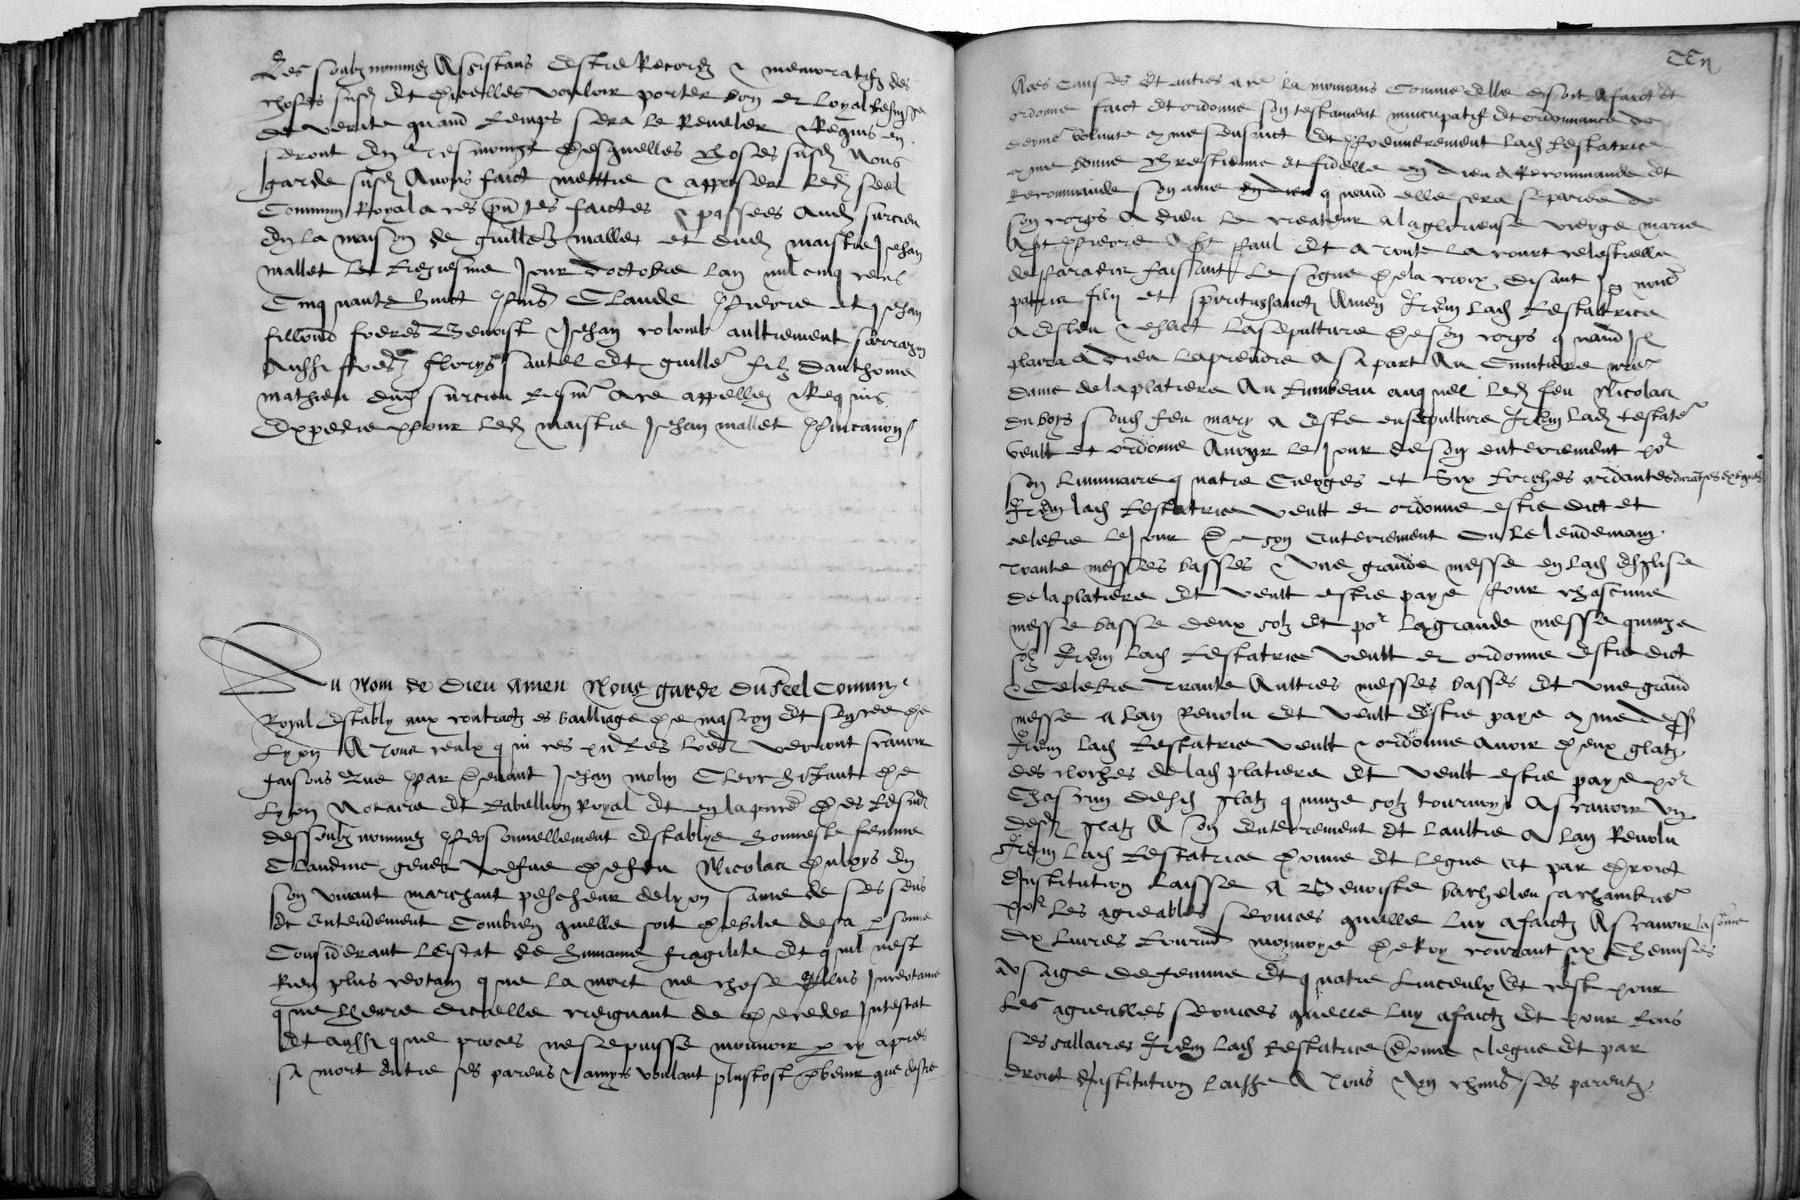 Les soubz nommez Assistans d'estre Recordz & memoratifz des
choses susd Et d'icelles vouloir porter bon et Loyal tesmoignage
de verite quand temps sera Le Reveler Requis en
seront En Tesmoings Desquelles choses susd Nous
garde susd Avons faict mettre & apposer Led seel
Commun Royal a ces pntes faictes & passees Aud surcieu
En La maison de guille mallet et dud maistre Jehan
mallet Le treziesme Jour d'octobre Lan mil cinq cens
Cinquante huict Pns Claude Pierre et Jehan
fillond freres Benoist & Jehan colomb aultrement sarrazin
Aussi freres florys sautel Et guille filz d'anthoine
mathieu dud surcieu tesm A ce appellez & Requis
Expedie Pour Led maistre Jehan mallet
Au Nom de Dieu Amen Nous garde Du seel Commun
Royal Estably aux contractz es bailliage De mascon Et senes De
Lyon A Tous ceulx qui ces pntes Lres verront scavoir
faisons Que Par Devant Jehan molin Clerc habitant De
Lyon Notaire Et tabellion Royal Et en la pnce Des tesm
dessoubz nommez Personnellement Establye honneste femme
Claudine vefve De feu Nicolas Duboys En
son vivant marchant pescheur de lyon saine de ses sens
Et Entendement Combien quelle soit debile de sa psonne
Considerant L'estat de humaine fragilite Et quil n'est
Rien plus certain que La mort ne chose Plus Incertaine
que Lheure d'icelle creignant de Deceder Intestat
Et aussi que proces ne se puisse mouvoir cy apres
sa mort Entre ses parens & amys voulant plustost que d'estre
A ces Causes Et autres a ce La mouvans Comme Elle disoit A faict Et
ordonne faict Et ordonne son testament nuncupatif Et ordonnance de
derniere volunte comme sensuict Et Premierement Lad testatrice
comme bonne chrestienne Et fidelle en Dieu A Recommande Et
Recommande son ame quand elle sera separee de
son corps A dieu Le createur A la glorieuse vierge marie
A st Pierre A st Paul Et a toute La court celestielle
de Paradis faisant Le signe De la croix disant In nomine
patris filii et spiritus sancti Amen Item Lad testatrice
a Esleu & eslict La sepulture De son corps quand Il
plaira A Dieu La prendre A sa part Au Cimitiere nre
dame de la platiere Au tumbeau auquel Led feu Nicolas
duboys sond feu mary a Este ensepulture Item Lad testatrice
veult et ordonne Avoir Le Jour de son enterrement pour
son Luminaire quatre Cierges et six torches ardantes
Item Lad testatrice veult et ordonne estre dict et
celebre Le Jour De son Enterrement ou Le lendemain
trante messes basses & une grande messe en Lad Eglise
de la platiere Et veult estre paye Pour chascune
messe basse deux solz Et por La grande messe quinze
solz Item Lad testatrice veult et ordonne Estre dict
& Celebre trante Aultres messes basses Et une grand
messe A Lan Revolu Et veult Estre paye comme dess
Item Lad testatrice veult & ordonne avoir Deux glatz
des cloches de lad platiere Et veult estre paye pour
Chascun desd glatz quinze solz tournoys Ascavoir Un
desd glatz A son Enterrement Et Laultre A Lan Revolu
Item Lad testatrice Donne Et Legue Et par Droict
d'Institution Laisse A Benoiste sa chambriere
Por Les agreables services quelle Luy a faictz Ascavoir La somme
Dix Livres tourn monnoye De Roy courant six Chemises
A usaige de femme Et quatre Linceulx Et cest pour
Les agreables services quelle Luy a faictz Et pour tous
ses sallaires Item Lad testatrice Donne & legue Et par
droict d'Institution Laisse A Tous & Un chascun ses parentz